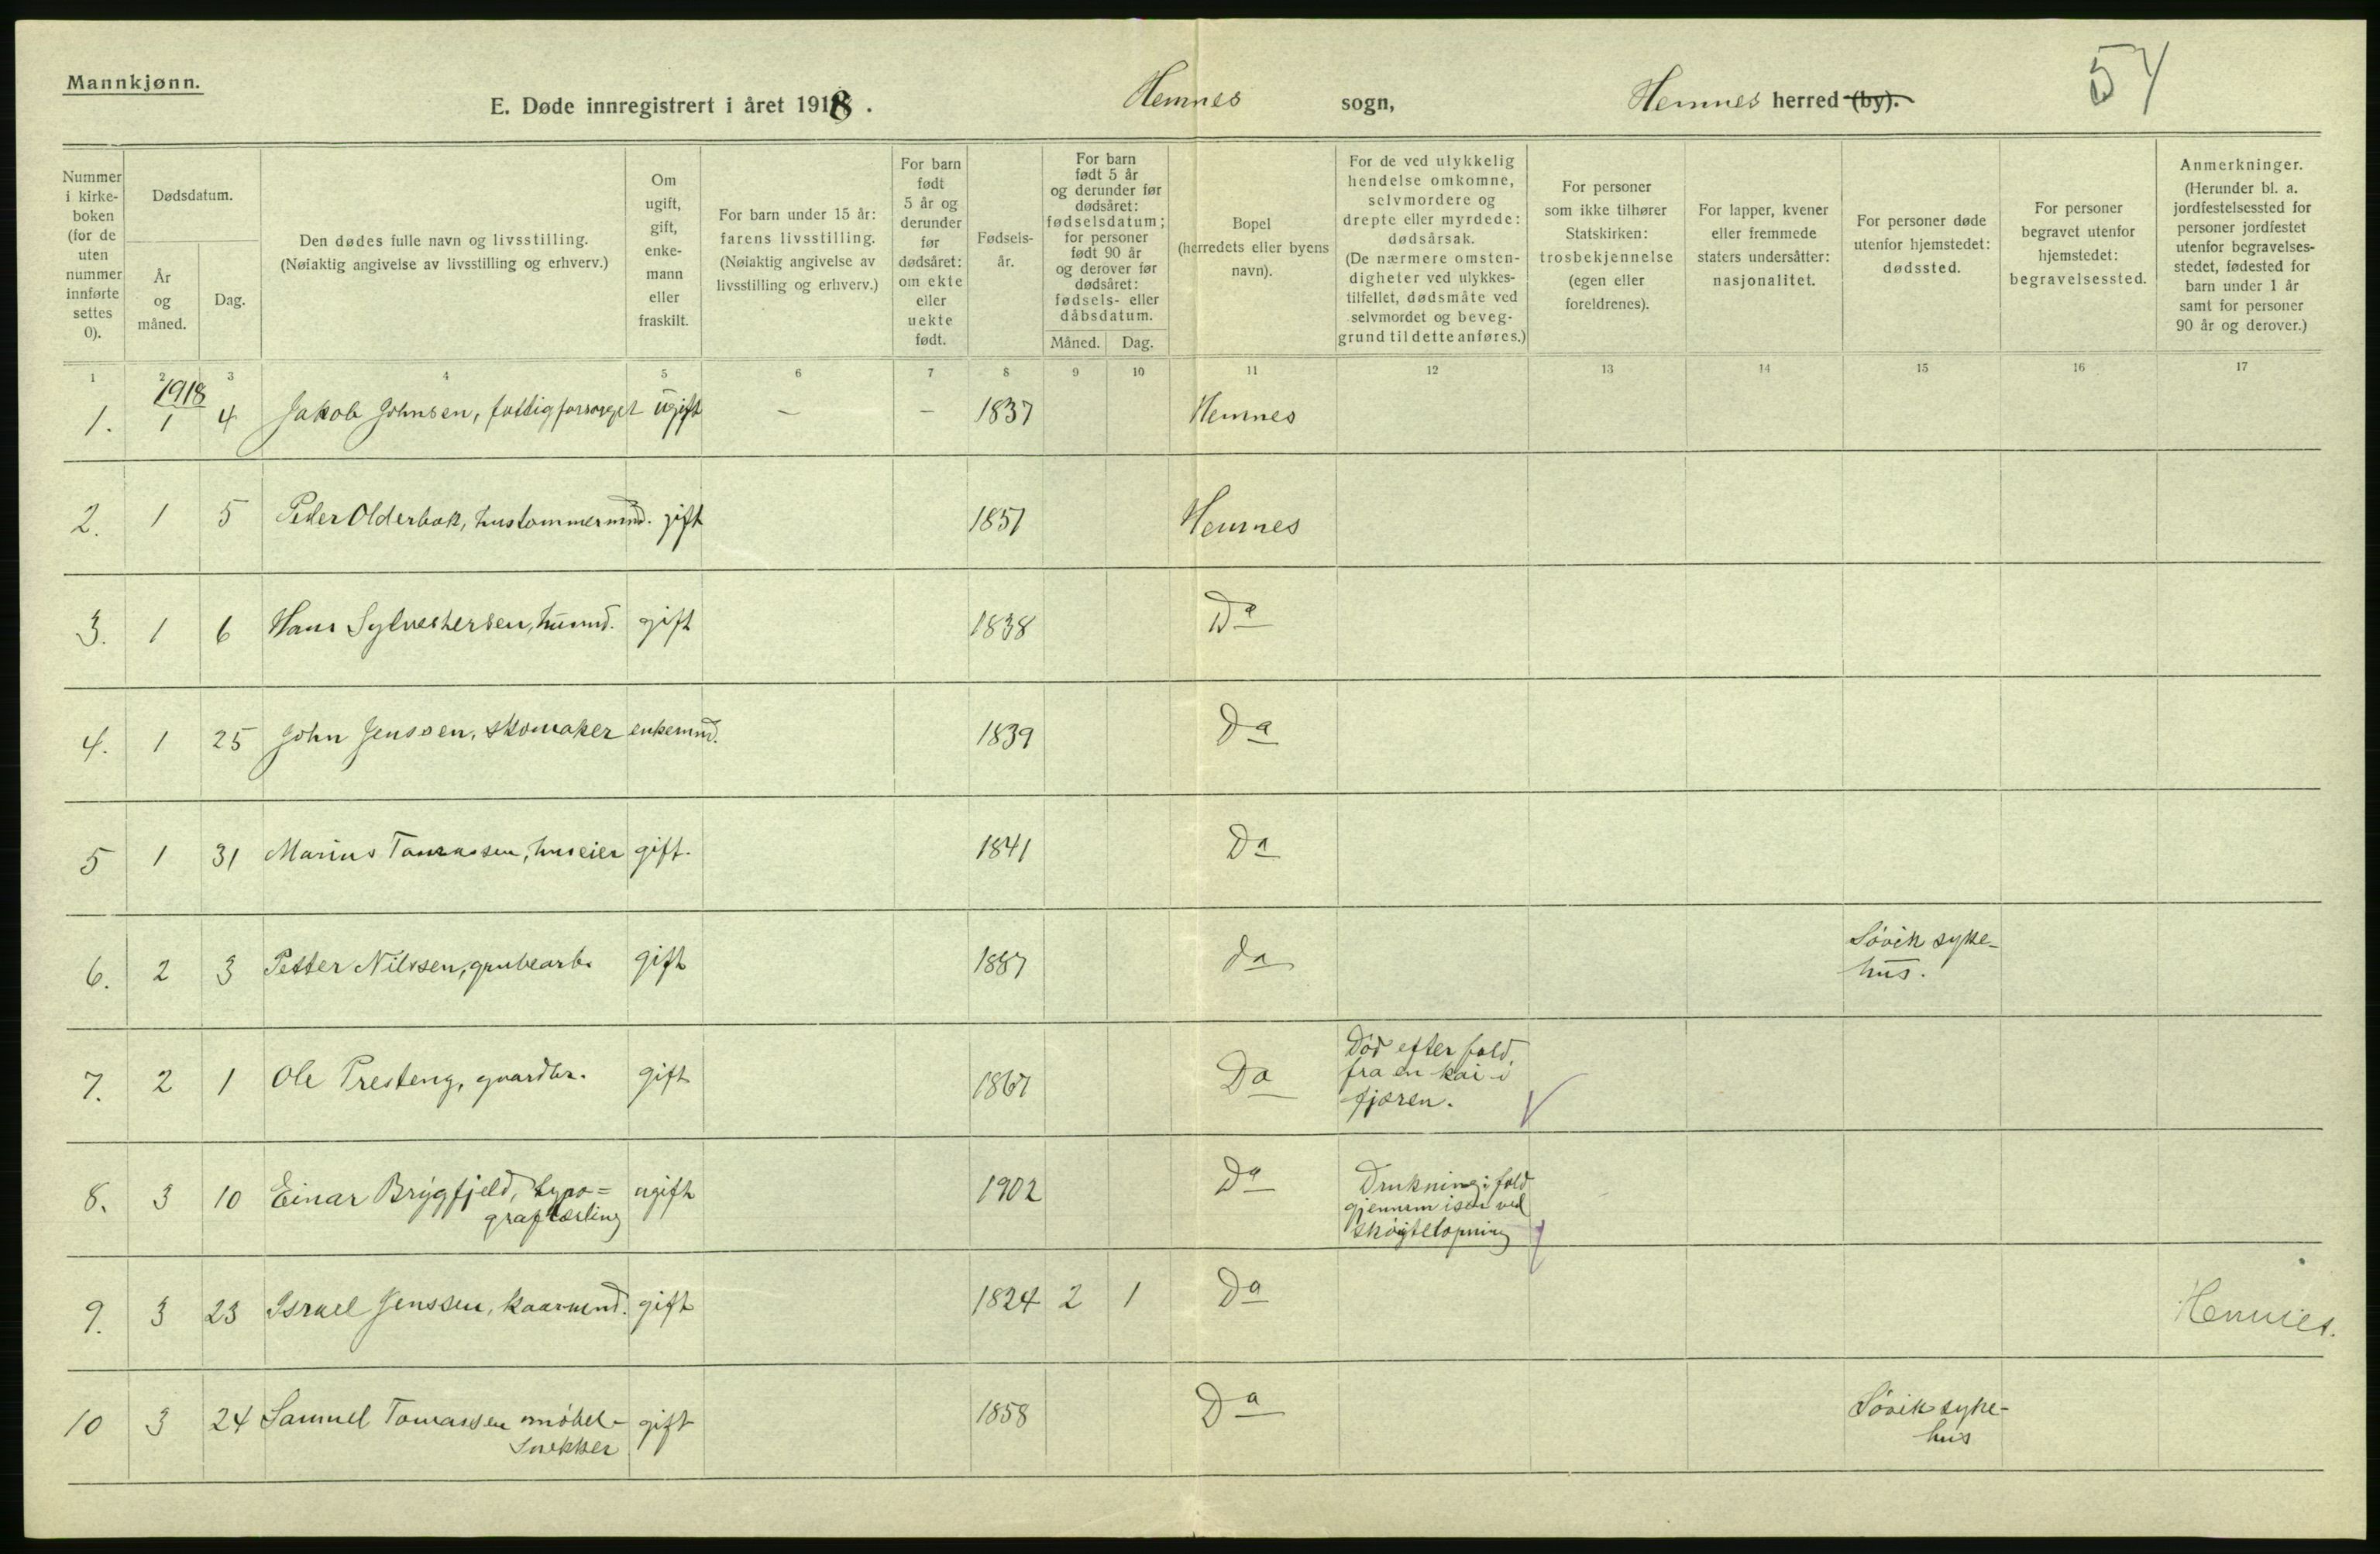 Mannkjønn.
54
E. Døde innregistrert i året 1918. Hemnes sogn, Hemnes herred (by).
Nummer i kirke-boken (for de uten nummer innførte settes 0).
Dødsdatum.
År og måned.
Dag.
Den dødes fulle navn og livsstilling.
(Nøiaktig angivelse av livsstilling og erhverv.)
Om ugift, gift, enke-mann eller fraskilt.
For barn under 15 år: farens livsstilling.
(Nøiaktig angivelse av livsstilling og erhverv.)
For barn født 5 år og derunder før dødsåret: om ekte eller uekte født.
Fødsels-år.
For barn født 5 år og derunder før dødsåret: fødselsdatum; for personer født 90 år og derover før dødsåret: fødsels- eller dåbsdatum.
Måned.
Dag.
Bopel (herredets eller byens navn).
For de ved ulykkelig hendelse omkomne, selvmordere og drepte eller myrdede: dødsårsak.
(De nærmere omsten-digheter ved ulykkes-tilfellet, dødsmåte ved selvmordet og beveg-grund til dette anføres.)
For personer som ikke tilhører Statskirken: trosbekjennelse (egen eller foreldrenes).
For lapper, kvener eller fremmede staters undersåtter: nasjonalitet.
For personer døde utenfor hjemstedet: dødssted.
For personer begravet utenfor hjemstedet: begravelsessted.
Anmerkninger.
(Herunder bl. a. jordfestelsessted for personer jordfestet utenfor begravelses-stedet, fødested for barn under 1 år samt for personer 90 år og derover.)
1 2 3 4 5 6 7 8 9 10 11 12 13 14 15 16 17
1918
1. 1 4 Jakob Johnsen, fattigforsørget ugift – – 1837 Hemnes
2. 1 5 Peder Olderbak, hustommermnd. gift 1851 Hemnes
3. 1 6 Hans Sylvestersen, husmd. gift 1838 Do
4. 1 25 John Jenssen, skomaker enkemnd. 1839 Do
5 1 31 Marius Tomassen, huseier gift. 1841 Do
6. 2 3 Petter Nilssen, grubearb. gift 1887 do Søvik syke-
hus.
7. 2 1 Ole Presteng, gaardbr. gift 1867 Do Død efter fald
fra en kai i
fjæren.
8. 3 10 Einar Brygfjeld, typo=
graflærling ugift 1902 Do Drukning; fald
gjennem isen ved
skøiteløpning
9. 3 23 Israel Jenssen, kaarmnd. gift 1824 2 1 Do Hemnes.
10 3 24 Samuel Tomassen møbel-
snekker gift 1858 Do Søvik syke-
hus